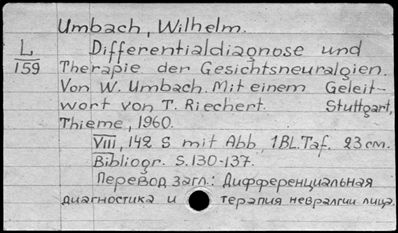 Umbach, Wilhelm.
L
159
Differentialdiagnose und
Therapie der Gesichtsneuralgien.
Von W. Umbach. Mit einem Geleit-
wort von T. Riechert. Stuttgart,
Thieme, 1960.
VIII, 142 S mit Abb, 1BL.Taf. 23 cm.
Bibliogr. S.130-137.
Перевод загл.: Дифференциальная
диагностика и терапия невралгии лица.